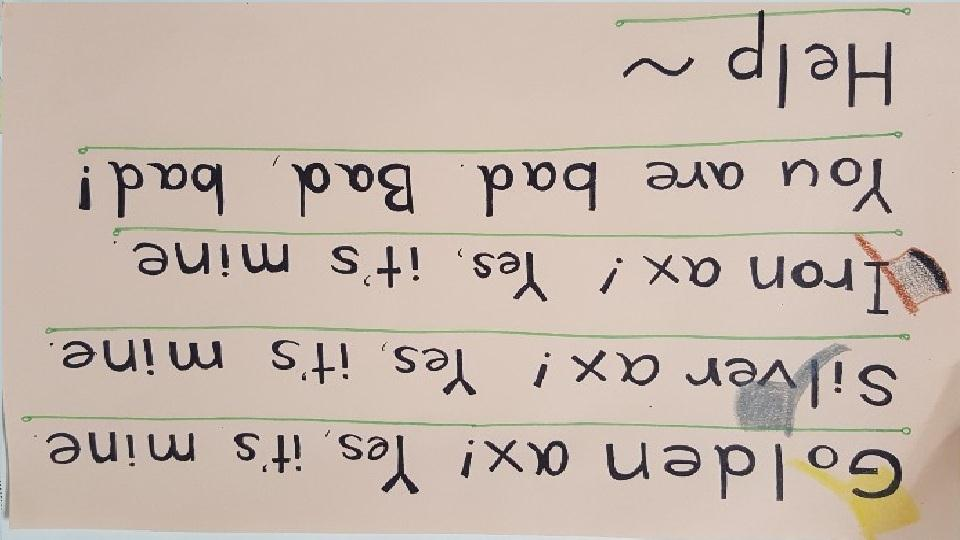 Golden ax! Yes, it's mine.
Silver ax! Yes, it's mine.
Iron ax! Yes, it's mine.
You are bad. Bad, bad!
Help ~